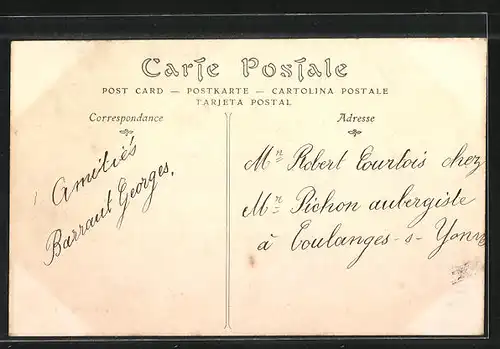 Carte Postale
POST CARD — POSTKARTE — CARTOLINA POSTALE
TARJETA POSTAL
Correspondance
Adresse
Amitiés
Barraut Georges.
Mr Robert Courtois chez
Mr Pichon aubergiste
à Coulanges-s-Yonne